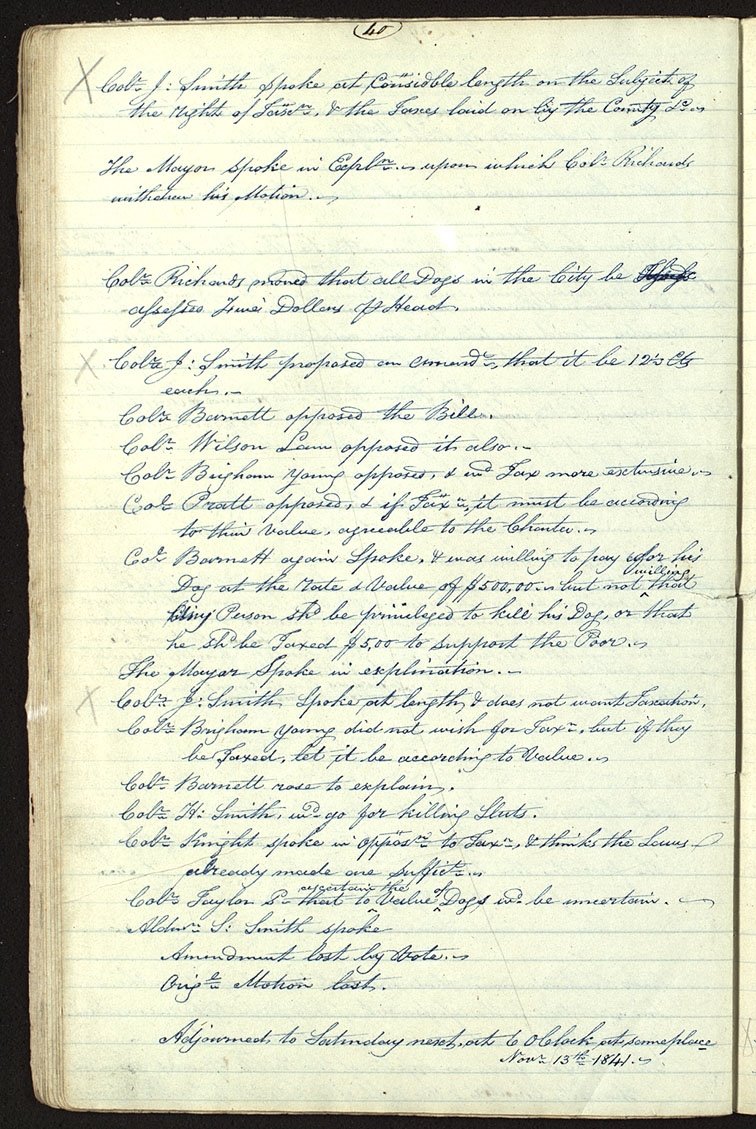 40
X Colr. J: Smith spoke at Considble length on the Subject of
the right of Taxn., & the Taxes laid on by the County &c.
The Mayor spoke in Expln. upon which Colr. Richards
withdrew his Motion.
Colr. Richards moved that all Dogs in the City be
assessed Two Dollars pr Head.
X Colr. J: Smith proposed an amendt., that it be 12½ Cts
each.
Colr. Barnett opposed the Bill.
Colr. Wilson Law opposed it also.
Colr. Brigham Young opposes, & wd Tax more extensive.
Colr. Pratt opposed, & if Taxn., it must be according
to their value, agreeable to the Charter.
Colr. Barnett again Spoke, & was willing to pay for his
Dog at the rate & Value of $500,00. but not willing that
any Person shd be priviledged to kill his Dog, or that
he shd be Taxed $5,00 to support the Poor.
The Mayor Spoke in explination.
X Colr. J: Smith Spoke at length, & does not want Taxation.
Colr. Brigham Young did not wish for Taxn., but if they
be Taxed, let it be according to Value.
Colr. Barnett rose to explain.
Colr. H: Smith, wd go for killing Sluts.
Colr. Knight spoke in opposn. to Taxn., & thinks the Laws
already made are suffict.
Colr. Taylor sd that to ascertain the Value of Dogs wd be uncertain.
Aldrn. S: Smith spoke
Amendment lost by Vote.
Origl. Motion lost.
Adjourned to Saturday next, at 6 O'Clock at same place
Novr. 13th 1841.